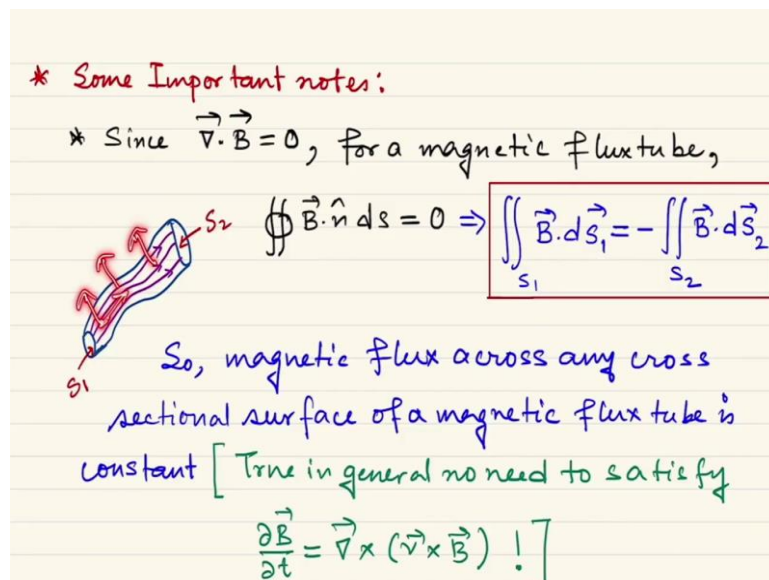 * Some Important notes:
* Since ∇⃗·B⃗ = 0, for a magnetic flux tube,
∯ B⃗·n̂ ds = 0 ⇒ ∬_S₁ B⃗·dS⃗₁ = - ∬_S₂ B⃗·dS⃗₂
S₂
S₁
So, magnetic flux across any cross
sectional surface of a magnetic flux tube is
constant [True in general no need to satisfy
∂B⃗/∂t = ∇⃗ × (v⃗ × B⃗) ! ]